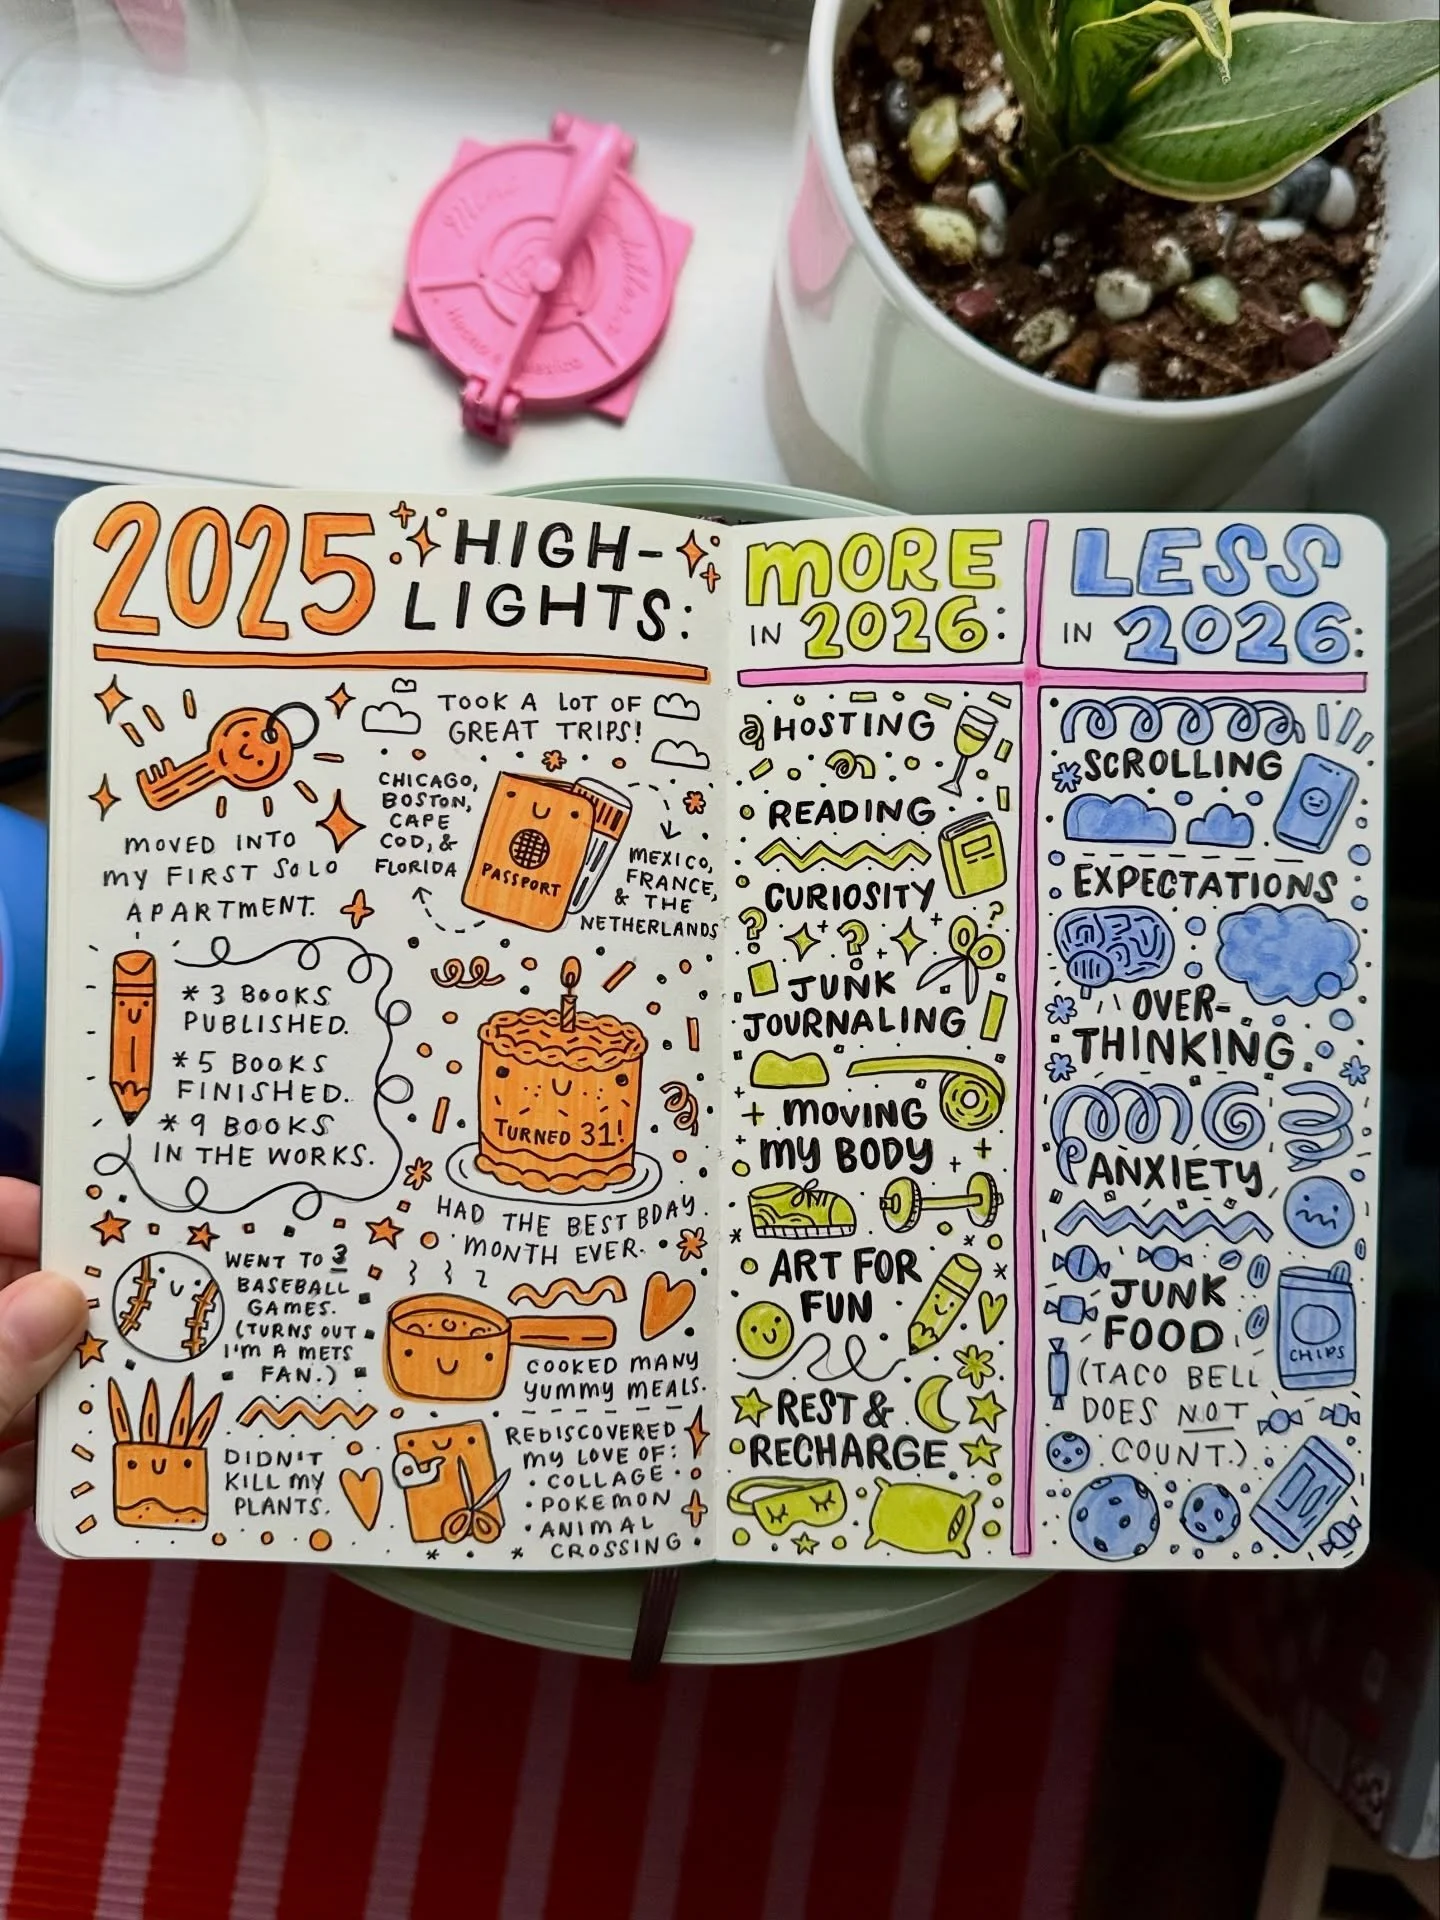 2025 HIGH-
LIGHTS:
MOVED INTO
MY FIRST SOLO
APARTMENT.
TOOK A LOT OF
GREAT TRIPS!
CHICAGO,
BOSTON,
CAPE
COD, &
FLORIDA
PASSPORT
MEXICO,
FRANCE,
& THE
NETHERLANDS
* 3 BOOKS
PUBLISHED.
* 5 BOOKS
FINISHED.
* 9 BOOKS
IN THE WORKS.
TURNED 31!
HAD THE BEST BDAY
MONTH EVER.
WENT TO 3
BASEBALL
GAMES.
(TURNS OUT
I'M A METS
FAN.)
COOKED MANY
YUMMY MEALS.
DIDN'T
KILL MY
PLANTS.
REDISCOVERED
MY LOVE OF:
• COLLAGE
• POKEMON
• ANIMAL
CROSSING
MORE
IN 2026:
HOSTING
READING
CURIOSITY
JUNK
JOURNALING
MOVING
MY BODY
ART FOR
FUN
REST &
RECHARGE
LESS
IN 2026:
SCROLLING
EXPECTATIONS
OVER-
THINKING
ANXIETY
JUNK
FOOD
(TACO BELL
DOES NOT
COUNT.)
CHIPS